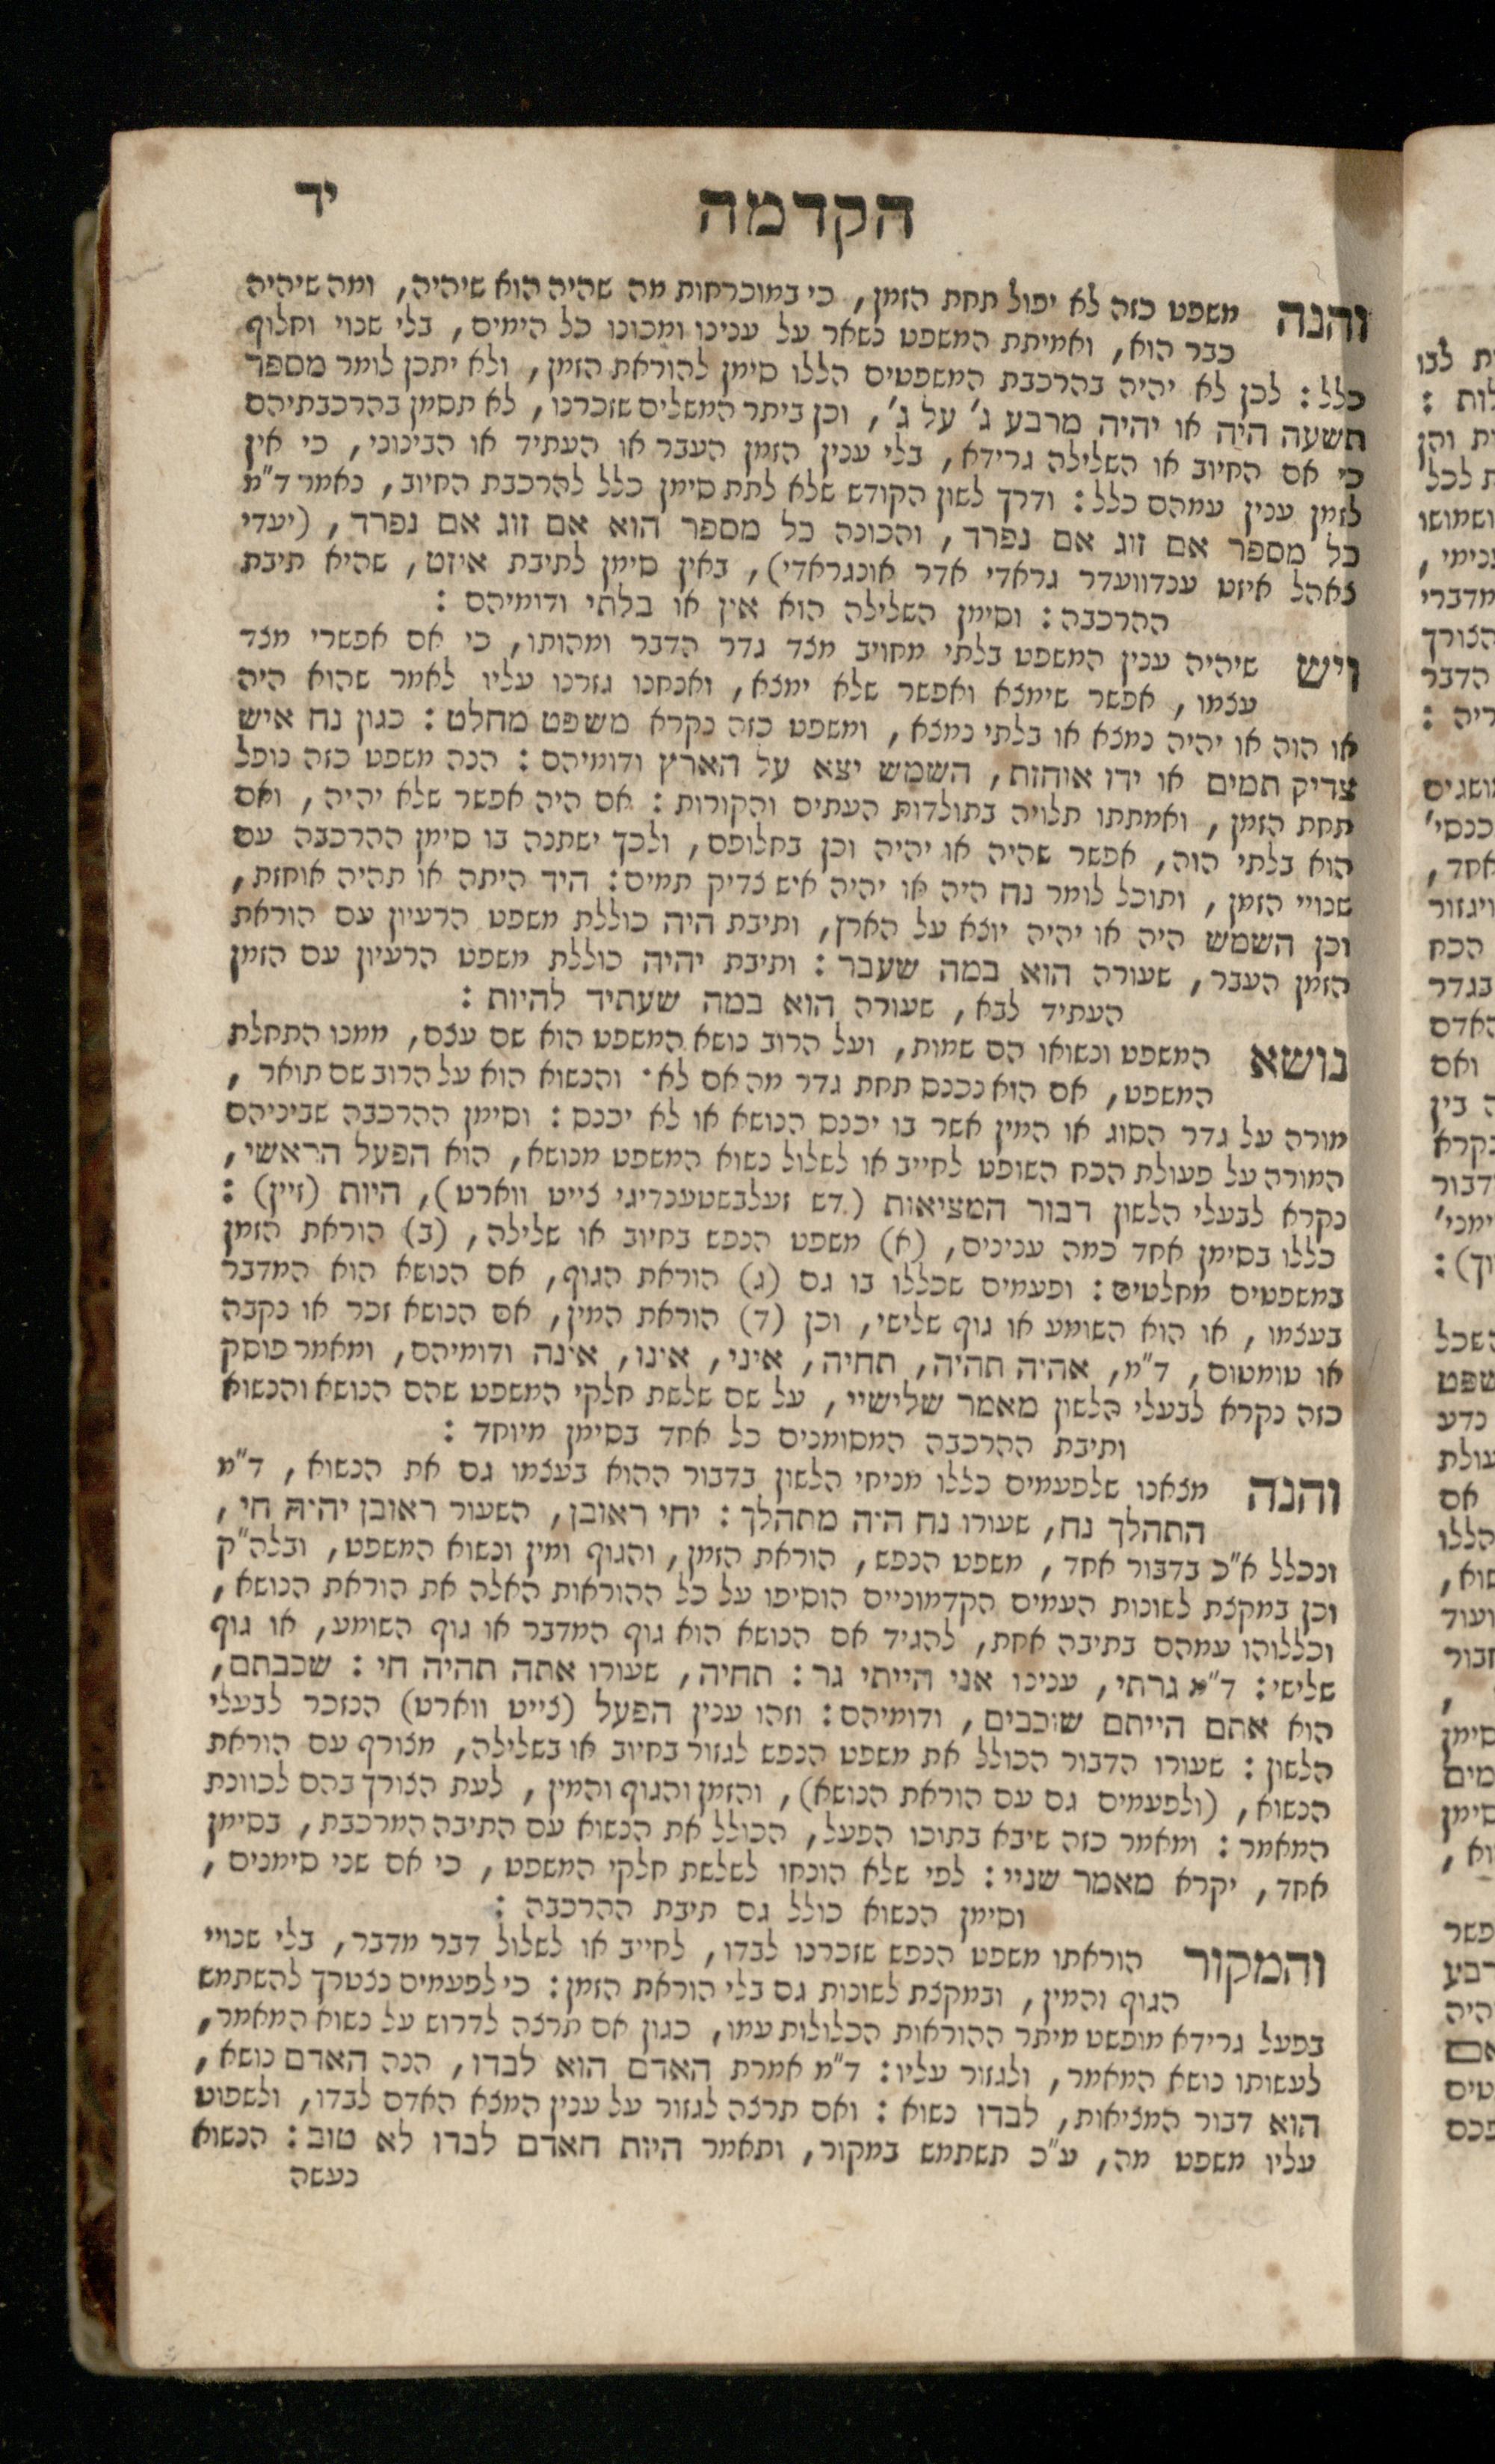 הקדמה
יד
והנה משפט כזה לא יפול תחת הזמן, כי במוכרחות מה שהיה הוא שיהיה, ומה שיהיה
כבר הוא, ואמיתת המשפט נשאר על ענינו ומכונו כל הימים, בלי שנוי וחלוף
כלל: לכן לא יהיה בהרכבת המשפטים הללו סימן להוראת הזמן, ולא יתכן לומר מספר
תשעה היה או יהיה מרבע ג' על ג', וכן ביתר המשלים שזכרנו, לא תסמן בהרכבתיהם
כי אם החיוב או השלילה גרידא, בלי ענין הזמן העבר או העתיד או הבינוני, כי אין
לזמן ענין עמהם כלל: ודרך לשון הקודש שלא לתת סימן כלל להרכבת החיוב, כאמר ד"מ
כל מספר אם זוג אם נפרד, והכונה כל מספר הוא אם זוג אם נפרד, (יעדי
צאהל איזט ענדוועדר גראדי אדר אונגראדי), באין סימן לתיבת איזט, שהיא תיבת
ההרכבה: וסימן השלילה הוא אין או בלתי ודומיהם:
ויש שיהיה ענין המשפט בלתי מחויב מצד גדר הדבר ומהותו, כי אם אפשרי מצד
עצמו, אפשר שימצא ואפשר שלא ימצא, ואנחנו גזרנו עליו לאמר שהוא היה
או הוה או יהיה נמצא או בלתי נמצא, ומשפט כזה נקרא משפט מחלט: כגון נח איש
צדיק תמים או ידו אוחזת, השמש יצא על הארץ ודומיהם: הנה משפט כזה נופל
תחת הזמן, ואמתתו תלויה בתולדות העתים והקורות: אם היה אפשר שלא יהיה, ואם
הוא בלתי הוה, אפשר שהיה או יהיה וכן בחלופם, ולכך ישתנה בו סימן ההרכבה עם
שנויי הזמן, ותוכל לומר נח היה או יהיה איש צדיק תמים: היד היתה או תהיה אוחזת,
וכן השמש היה או יהיה יוצא על הארץ, ותיבת היה כוללת משפט הרעיון עם הוראת
הזמן העבר, שעורה הוא במה שעבר: ותיבת יהיה כוללת משפט הרעיון עם הזמן
העתיד לבא, שעורה הוא במה שעתיד להיות:
נושא המשפט ונשואו הם שמות, ועל הרוב נושא המשפט הוא שם עצם, ממנו התחלת
המשפט, אם הוא נכנס תחת גדר מה אם לא. והנשוא הוא על הרוב שם תואר,
מורה על גדר הסוג או המין אשר בו יכנס הנושא או לא יכנס: וסימן ההרכבה שביניהם
המורה על פעולת הכח השופט לחייב או לשלול נשוא המשפט מנושא, הוא הפעל הראשי,
נקרא לבעלי הלשון דבור המציאות (דש זעלבשטענדיגי צייט ווארט), היות (זיין):
כללו בסימן אחד כמה ענינים, (א) משפט הנפש בחיוב או שלילה, (ב) הוראת הזמן
במשפטים מחלטים: ופעמים שכללו בו גם (ג) הוראת הגוף, אם הנושא הוא המדבר
בעצמו, או הוא השומע או גוף שלישי, וכן (ד) הוראת המין, אם הנושא זכר או נקבה
או טומטום, ד"מ, אהיה תהיה, תחיה, איני, אינו, אינה ודומיהם, ומאמר פוסק
כזה נקרא לבעלי הלשון מאמר שלישיי, על שם שלשת חלקי המשפט שהם הנושא והנשוא
ותיבת ההרכבה המסומנים כל אחד בסימן מיוחד:
והנה מצאנו שלפעמים כללו מניחי הלשון בדבור ההוא בעצמו גם את הנשוא, ד"מ
התהלך נח, שעורו נח היה מתהלך: יחי ראובן, השעור ראובן יהיה חי,
ונכלל א"כ בדבור אחד, משפט הנפש, הוראת הזמן, והגוף ומין ונשוא המשפט, ובלה"ק
וכן במקצת לשונות העמים הקדמוניים הוסיפו על כל ההוראות האלה את הוראת הנושא,
וכללוהו עמהם בתיבה אחת, להגיד אם הנושא הוא גוף המדבר או גוף השומע, או גוף
שלישי: ד"מ גרתי, ענינו אני הייתי גר: תחיה, שעורו אתה תהיה חי: שכבתם,
הוא אתם הייתם שוכבים, ודומיהם: וזהו ענין הפעל (צייט ווארט) הנזכר לבעלי
הלשון: שעורו הדבור הכולל את משפט הנפש לגזור בחיוב או בשלילה, מצורף עם הוראת
הנשוא, (ולפעמים גם עם הוראת הנושא), והזמן והגוף והמין, לעת הצורך בהם לכוונת
המאמר: ומאמר כזה שיבא בתוכו הפעל, הכולל את הנשוא עם התיבה המרכבת, בסימן
אחד, יקרא מאמר שניי: לפי שלא הונחו לשלשת חלקי המשפט, כי אם שני סימנים,
וסימן הנשוא כולל גם תיבת ההרכבה:
והמקור הוראתו משפט הנפש שזכרנו לבדו, לחייב או לשלול דבר מדבר, בלי שנויי
הגוף והמין, ובמקצת לשונות גם בלי הוראת הזמן: כי לפעמים נצטרך להשתמש
בפעל גרידא מופשט מיתר ההוראות הכלולות עמו, כגון אם תרצה לדרוש על נשוא המאמר,
לעשותו נושא המאמר, ולגזור עליו: ד"מ אמרת האדם הוא לבדו, הנה האדם נושא,
הוא דבור המציאות, לבדו נשוא: ואם תרצה לגזור על ענין המצא האדם לבדו, ולשפוט
עליו משפט מה, ע"כ תשתמש במקור, ותאמר היות האדם לבדו לא טוב: הנשוא
נעשה